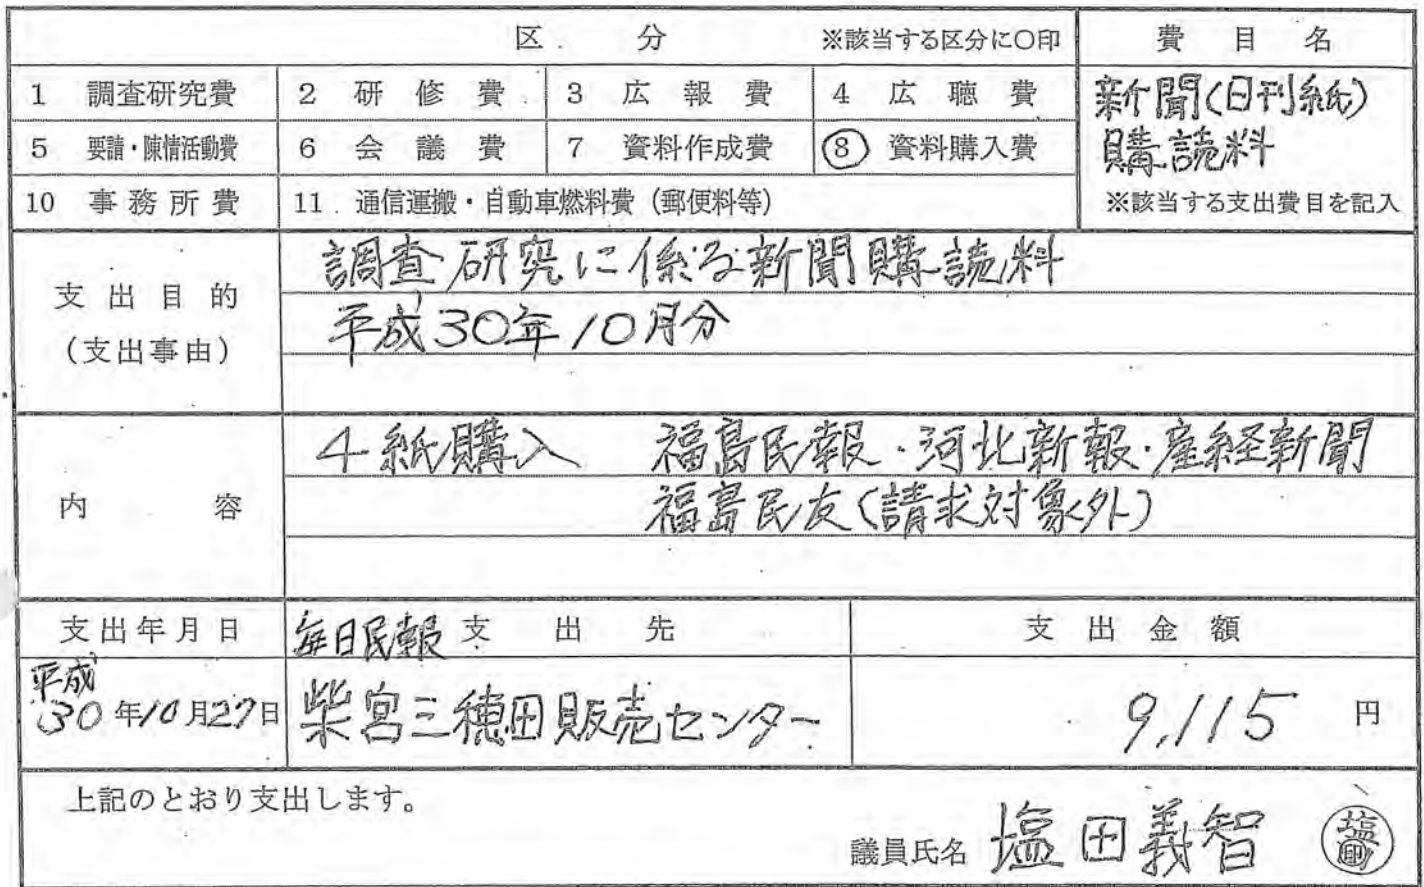 区 分 ※該当する区分に○印 費 目 名
1 調査研究費 2 研修費 3 広報費 4 広聴費 新聞(日刊紙)
5 要請・陳情活動費 6 会議費 7 資料作成費 ⑧ 資料購入費 購読料
10 事務所費 11 通信運搬・自動車燃料費(郵便料等) ※該当する支出費目を記入
調査研究に係る新聞購読料
支出目的
平成30年10月分
(支出事由)
4紙購入 福島民報・河北新報・産経新聞
内 容 福島民友(請求対象外)
支出年月日 毎日民報 支 出 先 支 出 金 額
平成
30年10月27日 柴宮三穂田販売センター 9,115 円
上記のとおり支出します。
議員氏名 塩田義智